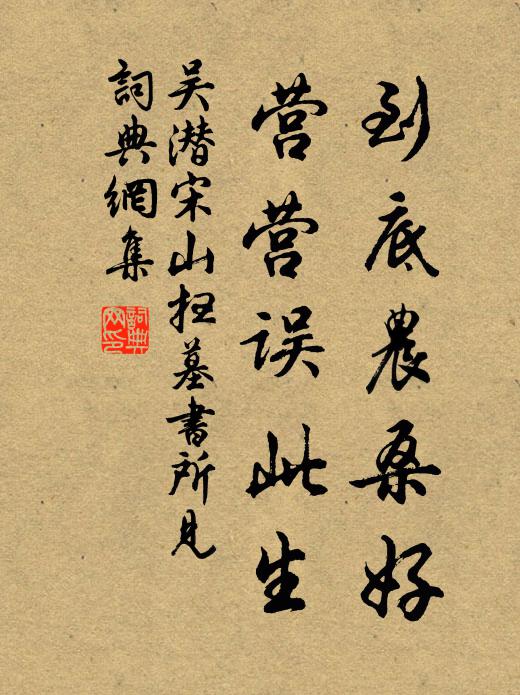 到底農桑好
营营误此生
吴潜宋山扫墓書所見
詞典網集
詞典网印